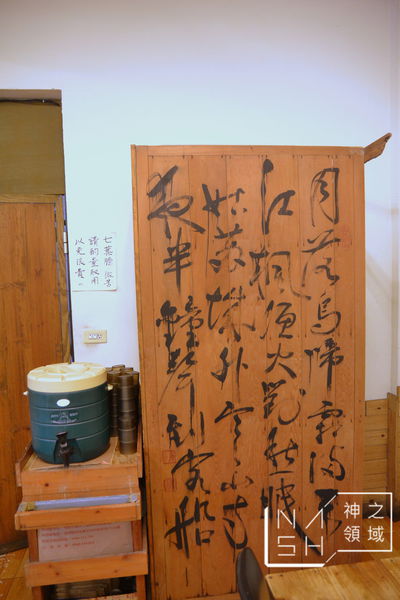 月落烏啼霜滿天
江楓漁火對愁眠
姑蘇城外寒山寺
夜半鐘聲到客船
七葉膽 微苦
請酌量取用
以免浪費。
神之
領域